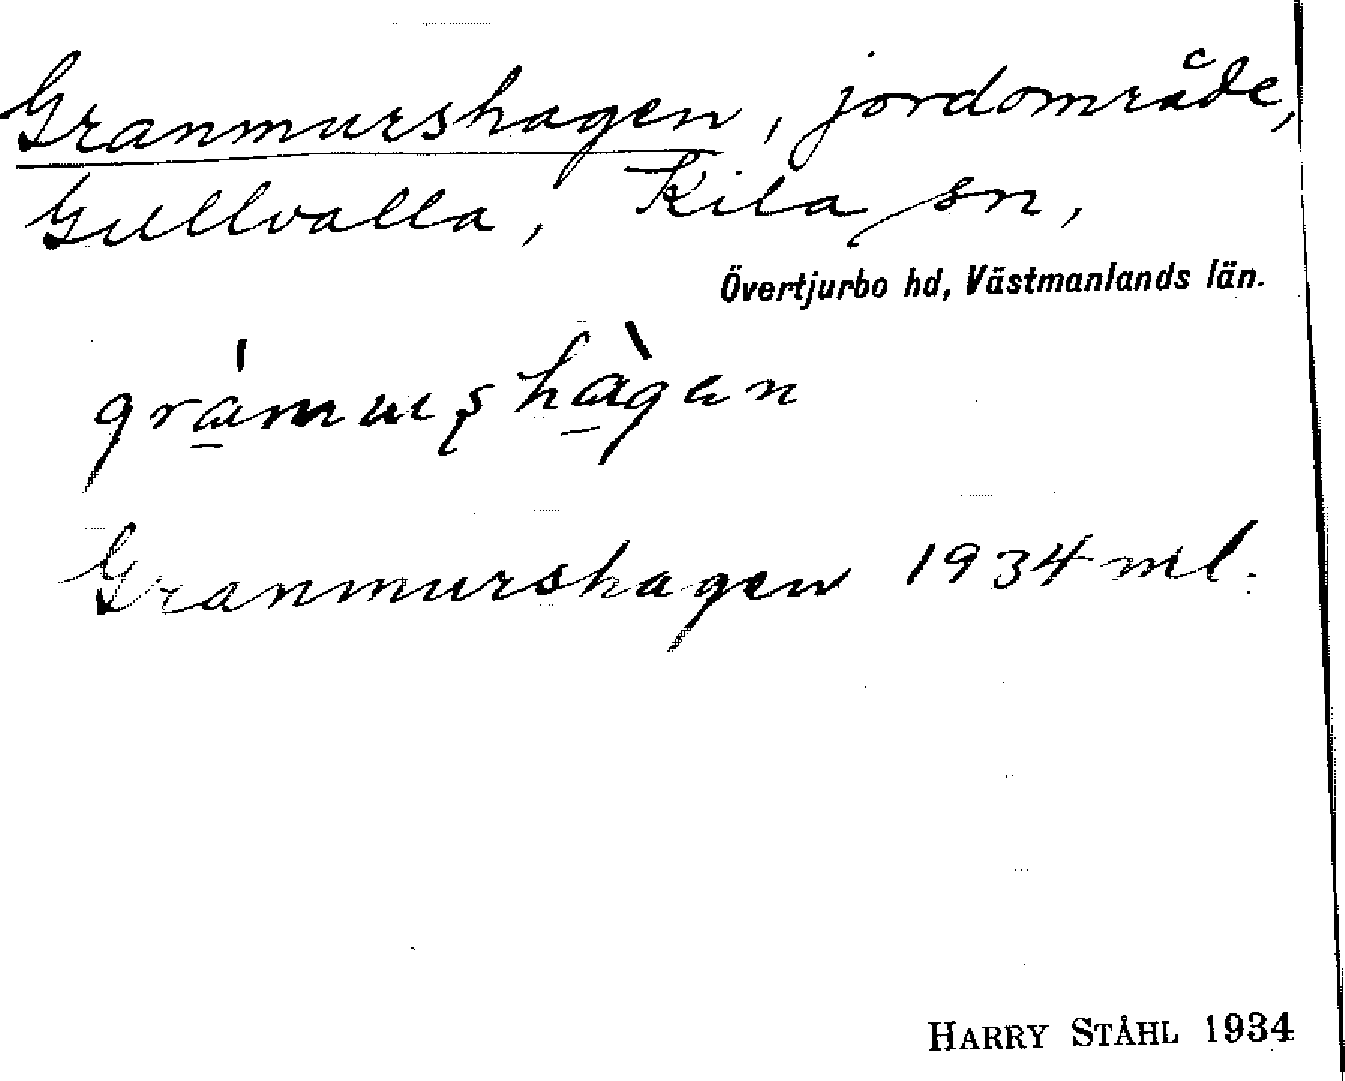 Granmurshagen, jordområde,
Gullvalla, Kila sn,
Övertjurbo hd, Västmanlands län.
gra̲̍mmuʂhà̲gan
Granmurshagen 1934 ml.
HARRY STÅHL 1934